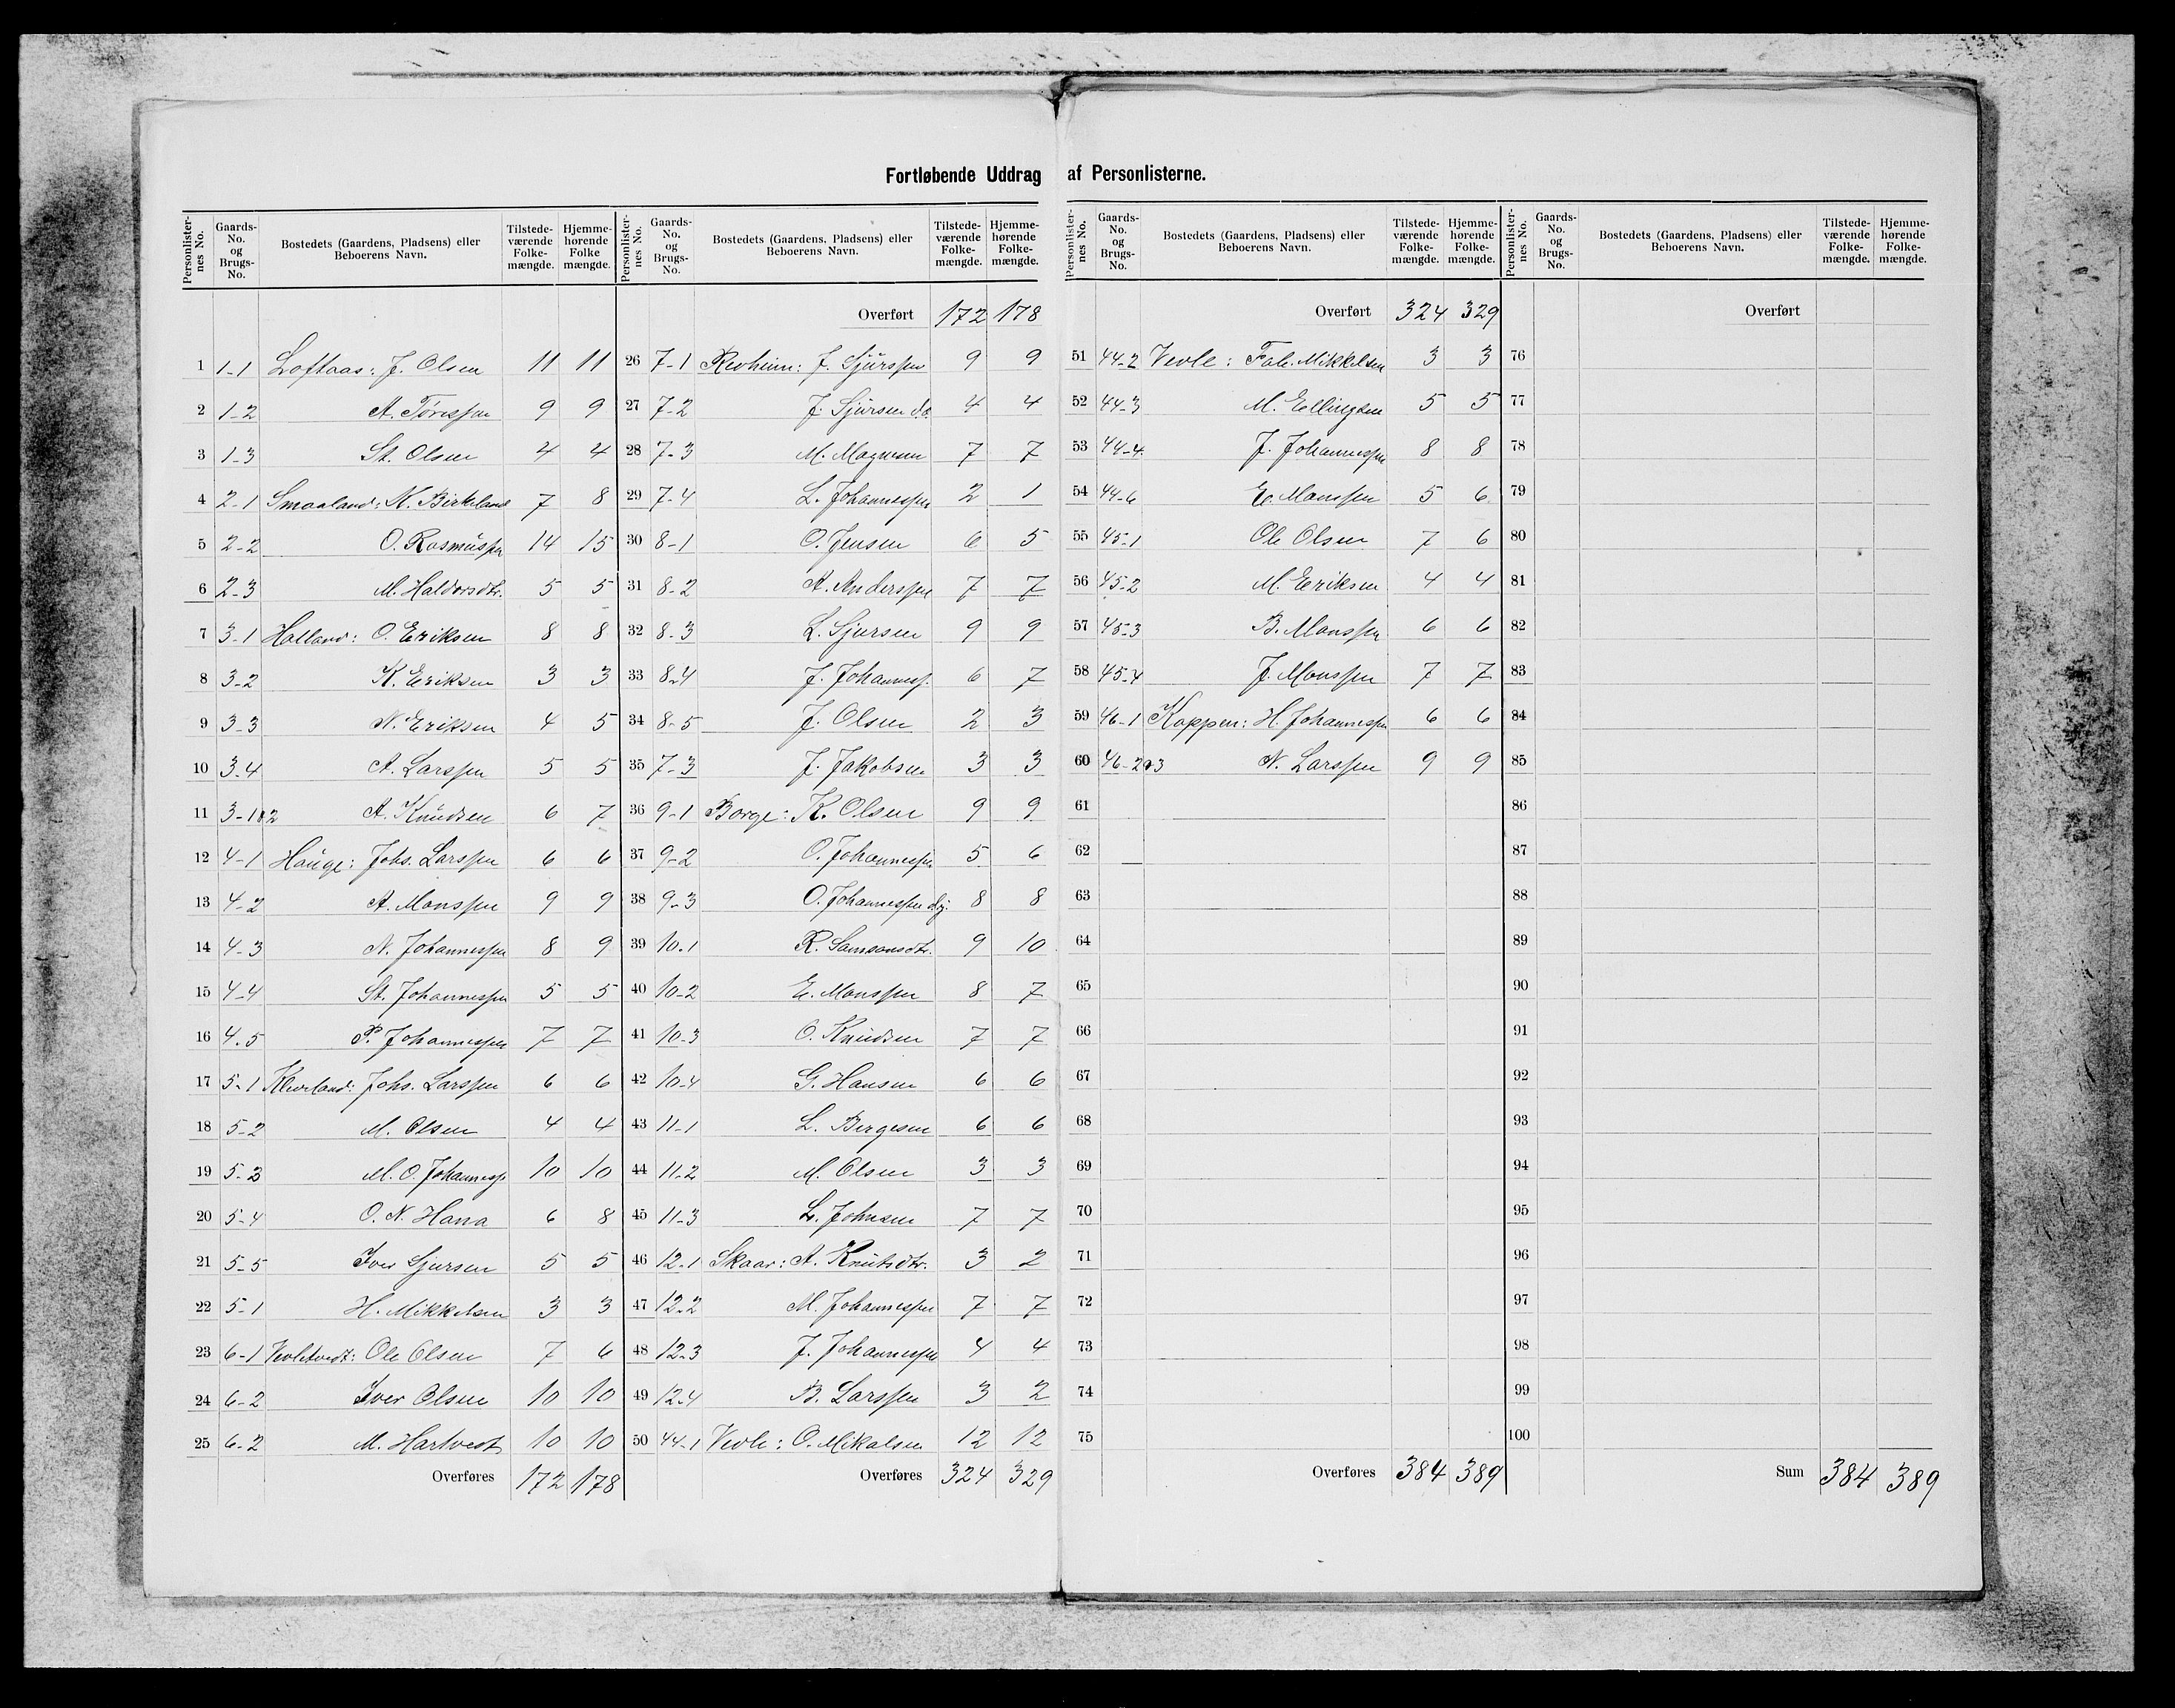 Fortløbende Uddrag af Personlisterne.
Personlister-nes No. Gaards-No. og Brugs-No. Bostedets (Gaardens, Pladsens) eller Beboerens Navn. Tilstede-værende Folke-mængde. Hjemme-hørende Folke mængde.
1 1-1 Loftaas: J. Olsen 11 11
2 1-2 A. Tøressen 9 9
3 1-3 St. Olsen 4 4
4 2-1 Smaaland: N. Birkeland 7 8
5 2-2 O. Rasmussen 14 15
6 2-3 M. Haldorsdtr. 5 5
7 3-1 Halland: O. Eriksen 8 8
8 3-2 K. Eriksen 3 3
9 3-3 N. Eriksen 4 5
10 3-4 A. Larssen 5 5
11 3-1&2 A. Knudsen 6 7
12 4-1 Hauge: Johs. Larssen 6 6
13 4-2 A. Monssen 9 9
14 4-3 N. Johannessen 8 9
15 4-4 St. Johannessen 5 5
16 4-5 P. Johannessen 7 7
17 5-1 Kleveland: Johs. Larssen 6 6
18 5-2 M. Olsen 4 4
19 5-3 M. O. Johanness. 10 10
20 5-4 O. N. Hana 6 8
21 5-5 Iver Sjursen 5 5
22 5-1 H. Mikkelsen 3 3
23 6-1 Vevletvedt: Ole Olsen 7 6
24 6-2 Iver Olsen 10 10
25 6-2 M. Hartvedt 10 10
Overføres 172 178
Personlister-nes No. Gaards-No. og Brugs-No. Bostedets (Gaardens, Pladsens) eller Beboerens Navn. Tilstede-værende Folke-mængde. Hjemme-hørende Folke-mængde.
Overført 172 178
26 7-1 Revheim: J. Sjurssen 9 9
27 7-2 J. Sjursen d.æ. 4 4
28 7-3 M. Magnesen 7 7
29 7-4 L. Johannessen 2 1
30 8-1 O. Jensen 6 5
31 8-2 A. Anderssen 7 7
32 8-3 L. Sjursen 9 9
33 8-4 J. Johanness. 6 7
34 8-5 J. Olsen 2 3
35 7-3 J. Jakobsen 3 3
36 9-1 Borge: K. Olsen 9 9
37 9-2 O. Johannessen 5 6
38 9-3 O. Johannessen d.y. 8 8
39 10-1 R. Samsonsdtr. 9 10
40 10-2 E. Monssen 8 7
41 10-3 O. Knudsen 7 7
42 10-4 G. Hansen 6 6
43 11-1 L. Bergesen 6 6
44 11-2 M. Olsen 3 3
45 11-3 L. Johnsen 7 7
46 12-1 Skaar: A. Knutsdtr. 3 2
47 12-2 M. Johannessen 7 7
48 12-3 J. Johannessen 4 4
49 12-4 B. Larssen 3 2
50 44-1 Vevle: O. Mikalsen 12 12
Overføres 324 329
Personlister-nes No. Gaards-No. og Brugs-No. Bostedets (Gaardens, Pladsens) eller Beboerens Navn. Tilstede-værende Folke-mængde. Hjemme-hørende Folke-mængde.
Overført 324 329
51 44-2 Vevle: Fale Mikkelsen 3 3
52 44-3 M. Ellingsen 5 5
53 44-4 J. Johannessen 8 8
54 44-6 E. Monssen 5 6
55 45-1 Ole Olsen 7 6
56 45-2 M. Eriksen 4 4
57 45-3 B. Monssen 6 6
58 45-4 J. Monssen 7 7
59 46-1 Koppen: H. Johannessen 6 6
60 46-2&3 N. Larssen 9 9
61
62
63
64
65
66
67
68
69
70
71
72
73
74
75
Overføres 384 389
Personlister-nes No. Gaards-No. og Brugs-No. Bostedets (Gaardens, Pladsens) eller Beboerens Navn. Tilstede-værende Folke-mængde. Hjemme-hørende Folke-mængde.
Overført
76
77
78
79
80
81
82
83
84
85
86
87
88
89
90
91
92
93
94
95
96
97
98
99
100
Sum 384 389